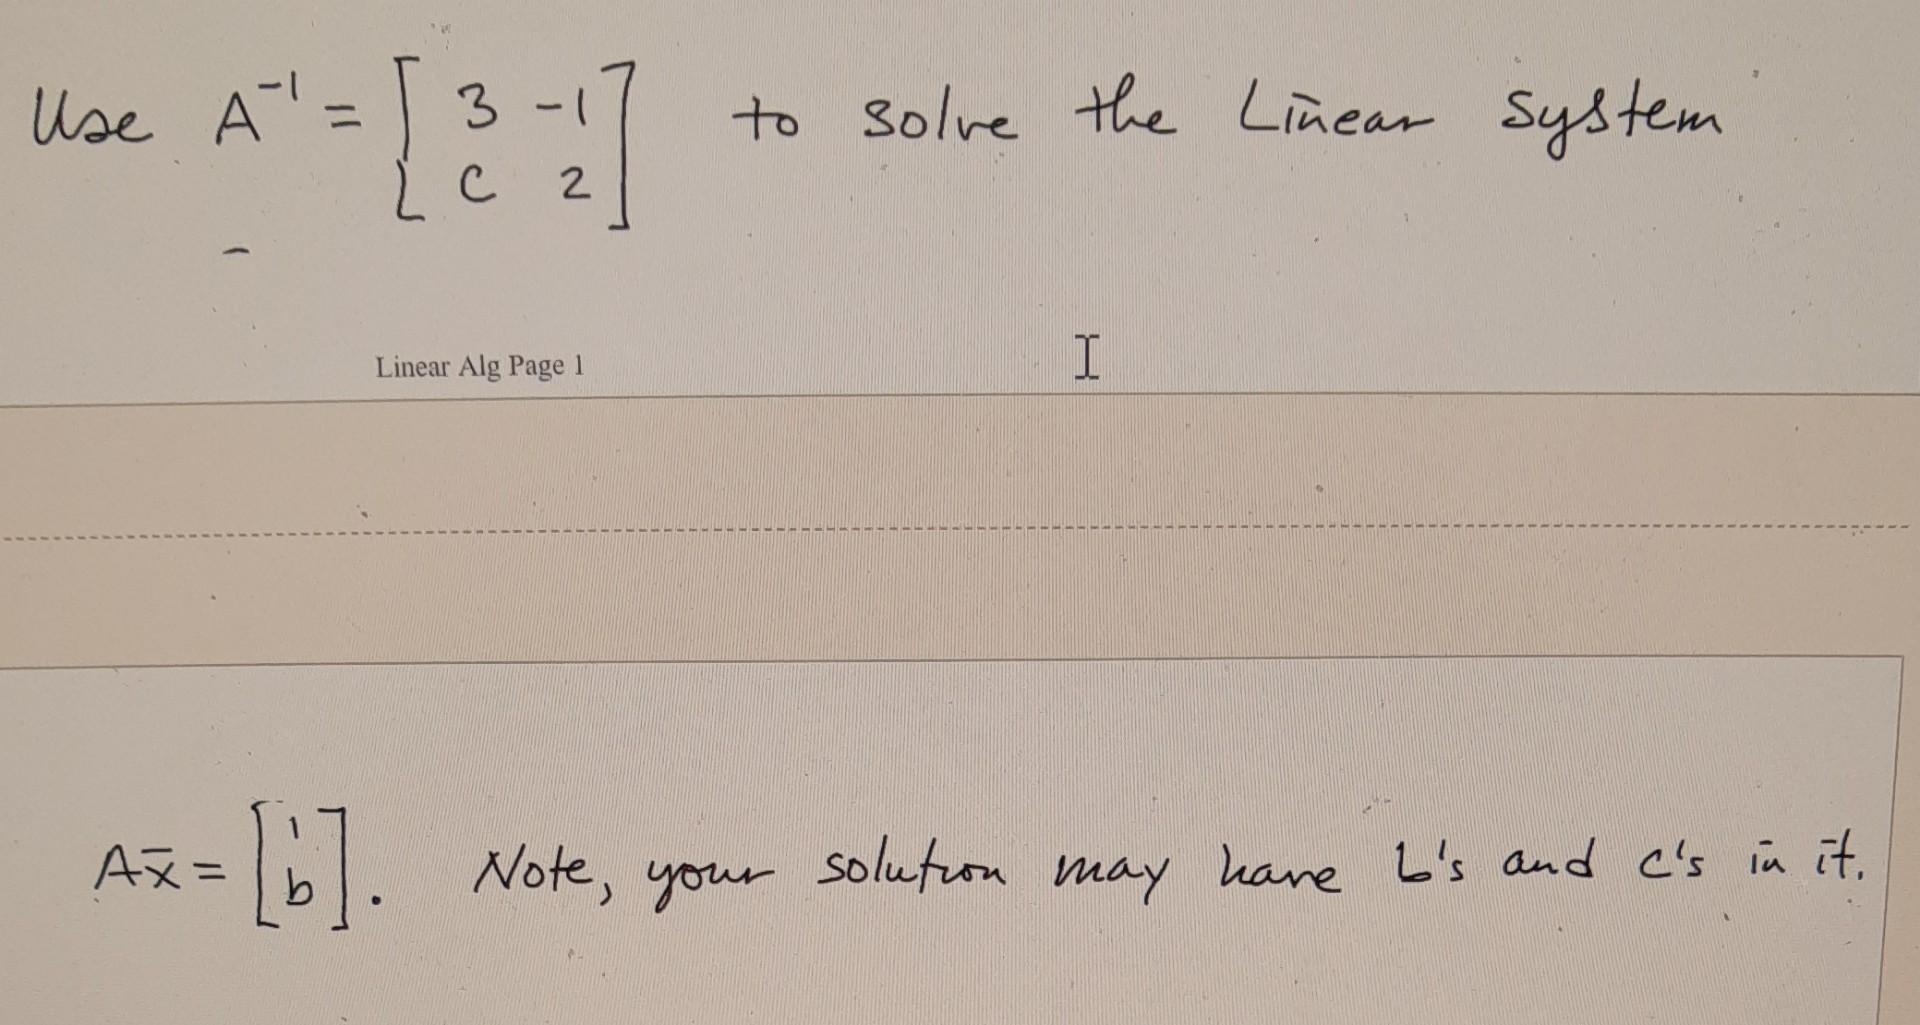 Use A⁻¹ = [ 3 -1 ] to solve the Linear system
[ c 2 ]
Linear Alg Page 1
Ax̄ = [ 1 ]
[ b ] . Note, your solution may have b's and c's in it.